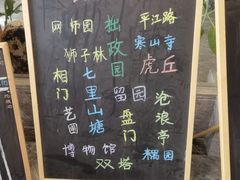 网师园
拙政园
平江路
狮子林
寒山寺
虎丘
相门
七里山塘
留园
沧浪亭
艺园
盘门
博物馆
双塔
耦园